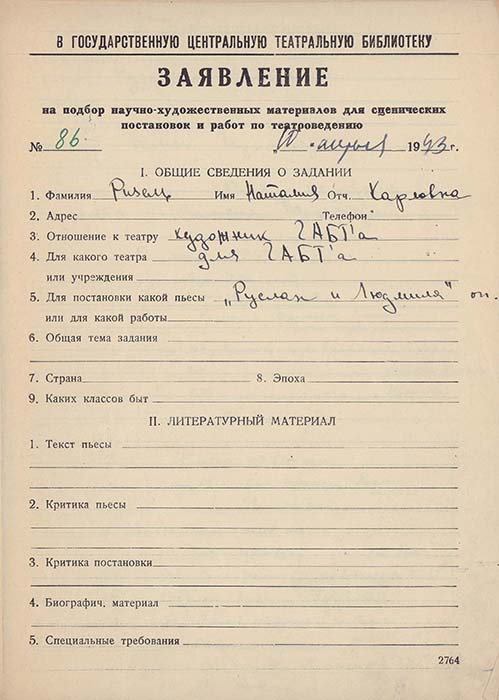 В ГОСУДАРСТВЕННУЮ ЦЕНТРАЛЬНУЮ ТЕАТРАЛЬНУЮ БИБЛИОТЕКУ
ЗАЯВЛЕНИЕ
на подбор научно-художественных материалов для сценических
постановок и работ по театроведению
№ 86. „10" апреля 1943 г.
I. ОБЩИЕ СВЕДЕНИЯ О ЗАДАНИИ
1. Фамилия Имя Наталия Отч. Карловна
2. Адрес Телефон
3. Отношение к театру художник ГАБТ'а
4. Для какого театра для ГАБТ'а
или учреждения
5. Для постановки какой пьесы „Руслан и Людмила" оп.
или для какой работы
6. Общая тема задания
7. Страна 8. Эпоха
9. Каких классов быт
II. ЛИТЕРАТУРНЫЙ МАТЕРИАЛ
1. Текст пьесы
2. Критика пьесы
3. Критика постановки
4. Биографич. материал
5. Специальные требования
2764